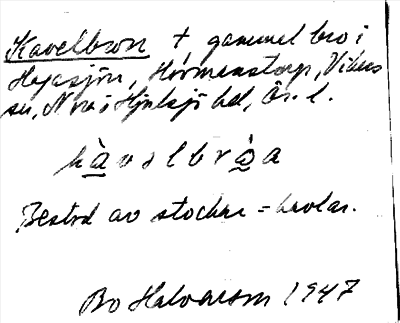 Kavelbron † gammal bro i
Hejasjön, Hörmanstorp, Vibers
sn, N. om Hjulsjö hd, Ör. l.
kàvəlbrὼa
Bestod av stockar = kavlar.
Bo Halvarson 1947